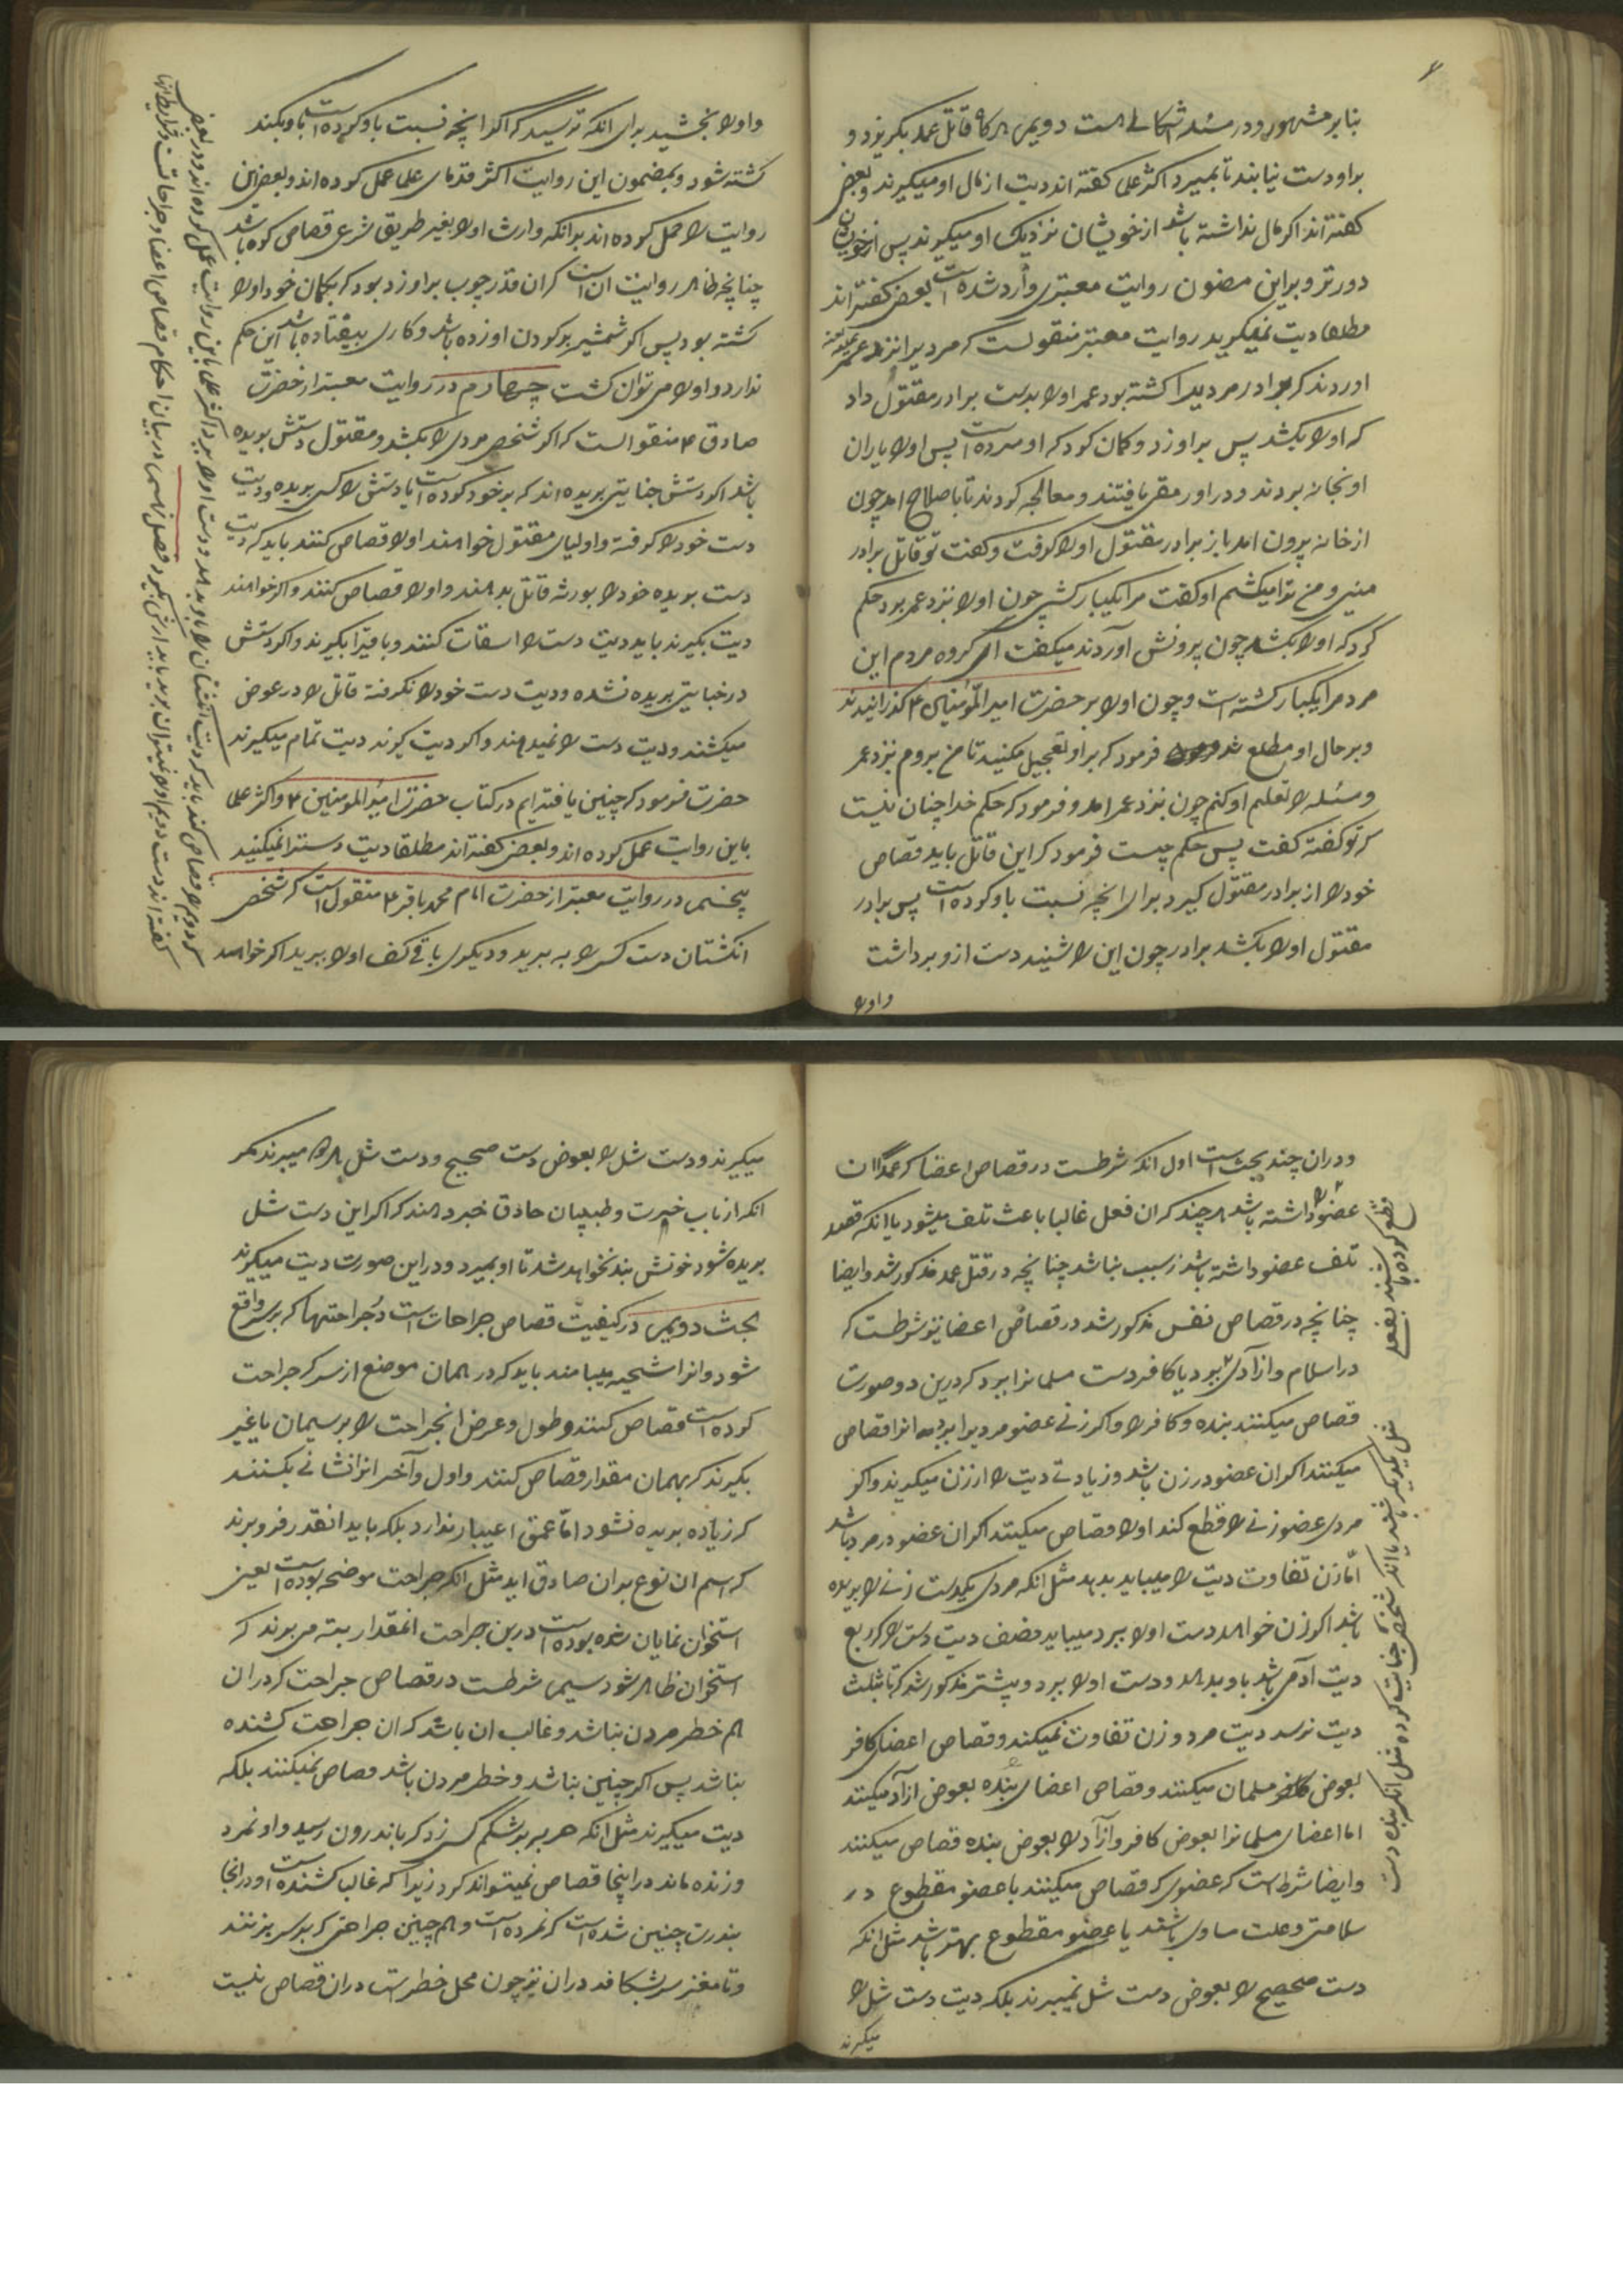 بنابر مشهور و در مسئله اشکالی هست دویم هرگاه قاتل عمد بگریزد و
بر او دست نیابند تا بمیرد اکثر علما گفته اند دیت از مال او میگیرند و بعضی
گفته اند اگر مال نداشته باشد از خویشان نزدیک او میگیرند پس از خویشان
دورتر و بر این مضمون روایت معتبری وارد شده است بعضی گفته اند
مطلقا دیت نمیگیرند روایت معتبر منقولست که مردیرا نزد عمر
اوردند که برادر مردیرا کشته بود عمر او را بدست برادر مقتول داد
که او را بکشد پس بر او زد و گمان کرد که او مرده است پس او را یاران
او بخانه بردند و در او رمقی یافتند و معالجه کردند تا باصلاح امد چون
از خانه بیرون امد باز برادر مقتول او را گرفت و گفت تو قاتل برادر
منی و من ترا میکشم او گفت مرا یکبار کشتی چون او را نزد عمر برد حکم
کرد که او را بکشد چون بیرونش آوردند میگفت ای گروه مردم این
مرد مرا یکبار کشته است و چون او را بر حضرت امیر المؤمنین ع گذرانیدند
و بر حال او مطلع شد فرمود که بر او تعجیل مکنید تا من بروم نزد عمر
و مسئله را تعلیم او کنم چون بنزد عمر امد و فرمود که حکم خدا چنان نیست
که تو گفته گفت پس حکم چیست فرمود که این قاتل باید قصاص
خود را از برادر مقتول گیرد برای انچه نسبت باو کرده است پس برادر
مقتول او را بکشد برادر چون این را شنید دست ازو برداشت
و او را
و او را بخشید برای انکه ترسید که اگر انچه نسبت باو کرده است باو بکند
کشته شود و بمضمون این روایت اکثر قدمای علما عمل کرده اند و بعضی این
روایت را حمل کرده اند بر انکه وارث او را بغیر طریق شرعی قصاص کرده باشد
چنانچه ظاهر روایت ان است که ان قدر چوب بر او زد بود که بگمان خود او را
کشته بود پس اگر شمشیر بر گردن او زده باشد و کاری بیفتاده باشد این حکم
ندارد و او را می توان کشت چهارم در روایت معتبر از حضرت
صادق ع منقولست که اگر شخصی مردی را بکشد و مقتول دستش بریده
باشد اگر دستش جنایتی بریده اند که بر خود کرده است یا دستش را کسی بریده و دیت
دست خود را گرفته و اولیای مقتول خواهند او را قصاص کنند باید که دیت
دست بریده خود را بورثه قاتل بدهند و او را قصاص کنند و اگر خواهند
دیت بگیرند باید دیت دست را اسقاط کنند و باقیرا بگیرند و اگر دستش
در جنایتی بریده نشده و دیت دست خود را نگرفته قاتل را در عوض
میکشند و دیت دست را نمیدهند و اگر دیت گیرند دیت تمام میگیرند
حضرت فرمود که چنین یافته ایم در کتاب حضرت امیر المومنین ع و اکثر علما
باین روایت عمل کرده اند و بعضی گفته اند مطلقا دیت دسترا نمیکنید
پنجم در روایت معتبر از حضرت امام محمد باقر ع منقول است که شخصی
انگشتان دست کسی را به برید و دیگری باقی کف او را ببرید اگر خواهد
که دویم را قصاص کند باید که دیت انگشتان را باو بدهد و دست او را ببرد اکثر علما باین روایت عمل کرده اند و بعضی
گفته اند دست دویم او را نمیتوان برید باید ارش بگیرد فصل نهم در بیان احکام قصاص اعضا و جراحاتست و شرایط انها
و دران چند بحث است اول انکه شرطست در قصاص اعضا که عمدا ان
عضو را قطع کرده باشند بفعلی
داشته باشد هر چند که ان فعل غالبا باعث تلف میشود یا انکه قصد
تلف عضو داشته باشد ز سبب نباشد چنانچه در قتل عمد مذکور شد و ایضا
چنانچه در قصاص نفس مذکور شد در قصاص اعضا نیز شرطست که
مثل یکدیگر باشند یا انکه شخصی جنایت کرده مثل انکه بنده دست
در اسلام و ازادی ببرد یا کافر دست مسلمانرا ببرد که درین دو صورت
قصاص میکنند بنده و کافر را و اگر زنی عضو مردیرا ببرد انرا قصاص
میکنند اگر ان عضو در زن باشد و زیادتی دیت را از زن میگیرند و اگر
مردی عضو زنی را قطع کند او را قصاص میکنند اگر ان عضو در مرد باشد
امّا زن تفاوت دیت را میباید بدهد مثل انکه مردی یکدست زنی را بریده
باشد اگر زن خواهد دست او را ببرد میباید نصف دیت دست را که ربع
دیت آدمی باشد باو بدهد و دست او را ببرد و پیشتر مذکور شد که تا بثلث
دیت نرسد دیت مرد و زن تفاوت نمیکند و قصاص اعضای کافر
بعوض مسلمان میکنند و قصاص اعضای بنده بعوض ازاد میکنند
اما اعضای مسلمانرا بعوض کافر و ازاد را بعوض بنده قصاص میکنند
و ایضا شرط است که عضوی که قصاص میکنند با عضو مقطوع در
سلامتی و علت مساوی باشند یا عضو مقطوع بهتر باشد مثل انکه
دست صحیح را بعوض دست شل نمیبرند بلکه دیت دست شل را
میگیرند
میگیرند و دست شل را بعوض دست صحیح و دست شل هر دو میبرند مگر
انکه ارباب خبرت و طبیبان حاذق خبر دهند که اگر این دست شل
بریده شود خونش بند نخواهد شد تا او بمیرد و در این صورت دیت میگیرند
بحث دویم در کیفیت قصاص جراحات است در جراحتها که بر سر واقع
شود و انرا شجیه مینامند باید که در همان موضع از سر که جراحت
کرده است قصاص کنند و طول و عرض انجراحت را بریسمان یا غیر
بگیرند که بهمان مقدار قصاص کنند و اول و آخر انرا نشانی بکنند
که زیاده بریده نشود امّا عمق اعتبار ندارد بلکه باید انقدر فرو برند
که اسم ان نوع بران صادق اید مثل انکه جراحت موضحه بوده است یعنی
استخوان نمایان شده بوده است درین جراحت انمقدار میبرند که
استخوان ظاهر شود سیم شرطست در قصاص جراحت که در ان
هم خطر مردن نباشد و غالب ان باشد که ان جراحت کشنده
نباشد پس اگر چنین نباشد و خطر مردن باشد قصاص نمیکنند بلکه
دیت میگیرند مثل انکه حربه بر شکم کسی زد که باندرون رسید و او نمرد
و زنده ماند در اینجا قصاص نمیتواند کرد زیرا که غالب کشنده است و در انجا
بندرت چنین شده است که نمرده است و هم چنین جراحتی که بر سر بزنند
و تا مغز سر بشکافد در ان نیز چون محل خطر است در ان قصاص نیست